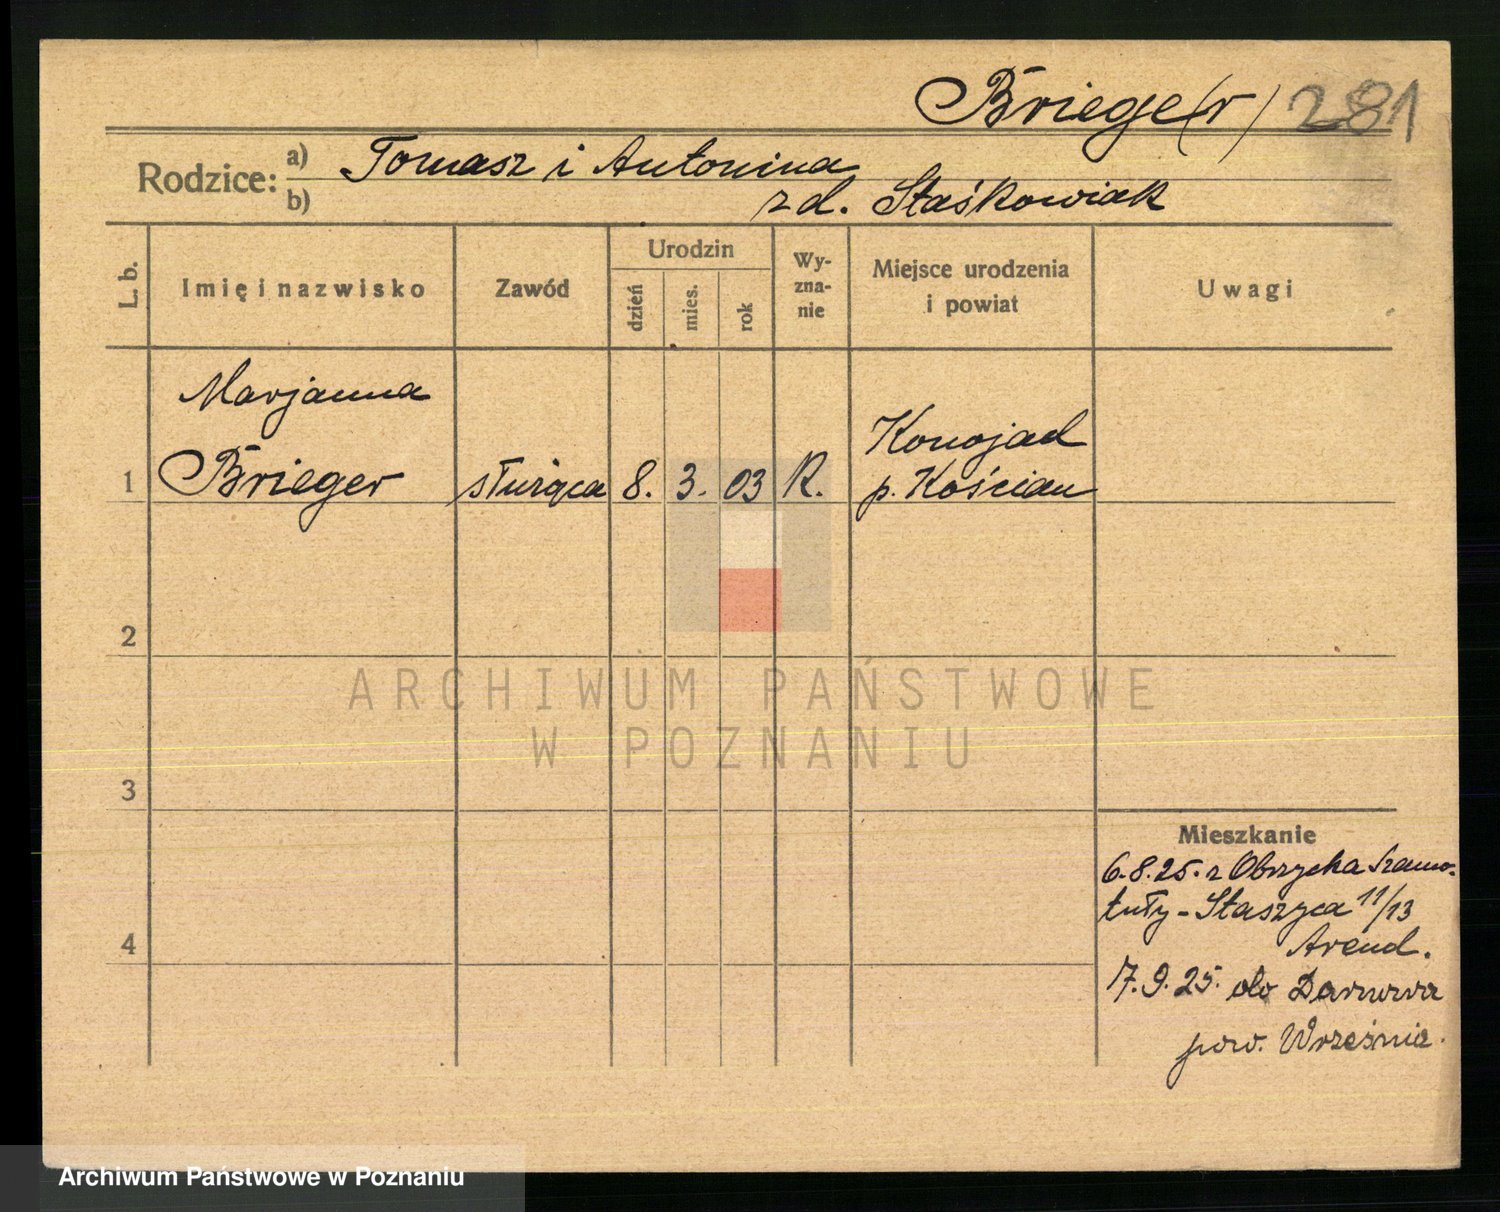 Briege(r) 281
Rodzice: a) Tomasz i Antonina
b) zd. Staśkowiak
L. b. Imię i nazwisko Zawód Urodzin dzień mies. rok Wyzna-nie Miejsce urodzenia i powiat Uwagi
Marjanna Konojad
1 Brieger służąca 8. 3. 03 R. p. Kościan
2
ARCHIWUM PAŃSTWOWE
W POZNANIU
3
Mieszkanie
6.8.25. z Obrzycka Szamo-
tuły - Staszyca 11/13
4 Arend.
17.9.25. do
pow. Września.
Archiwum Państwowe w Poznaniu